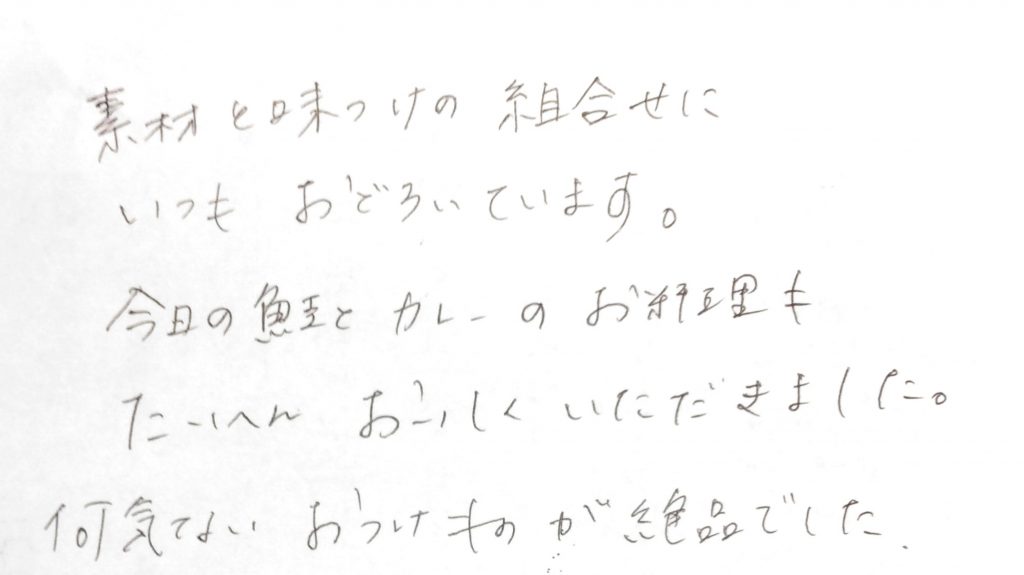 素材と味つけの 組合せに
いつも おどろいています。
今日の鮭とカレーのお料理も
たいへん おいしく いただきました。
何気ない おつけものが絶品でした.